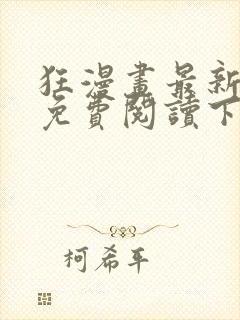 狂漫畫最新
免費閱讀下
柯希平